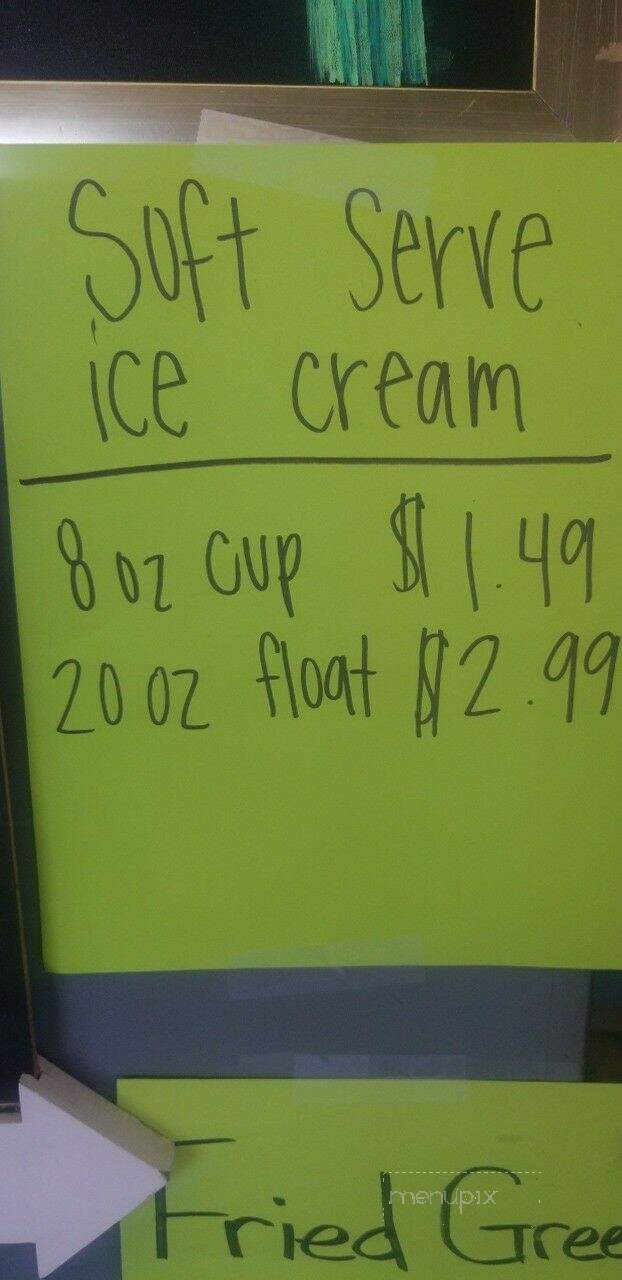 Soft Serve
ice cream
8 oz cup $1.49
20 oz float $2.99
Fried Gree
menupix